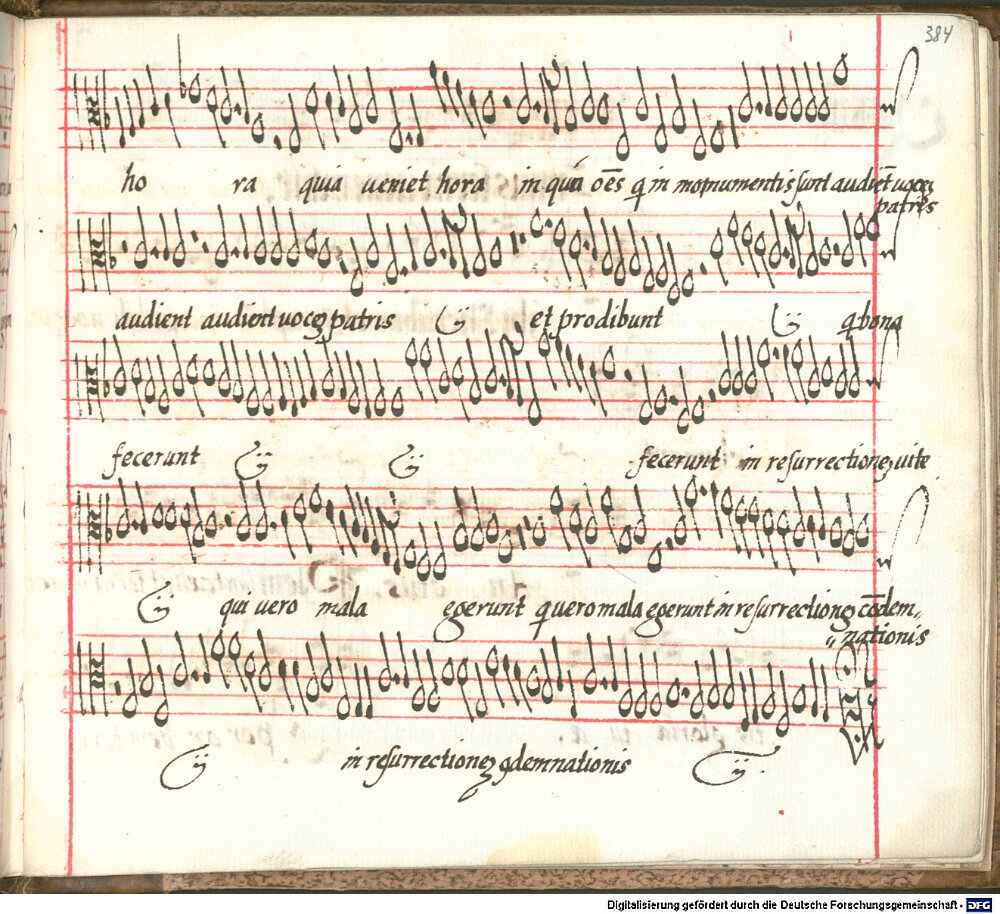 384
ho ra quia veniet hora in qua oēs q in monumentis sunt audiēt voces
patris
audient audient voces patris ij et prodibunt ij q bona
fecerunt ij ij fecerunt in resurrectionez vite
ij qui vero mala egerunt q vero mala egerunt in resurrectionez cōdem„
„nationis
ij in resurrectionez 9demnationis ij.
Digitalisierung gefördert durch die Deutsche Forschungsgemeinschaft - DFG